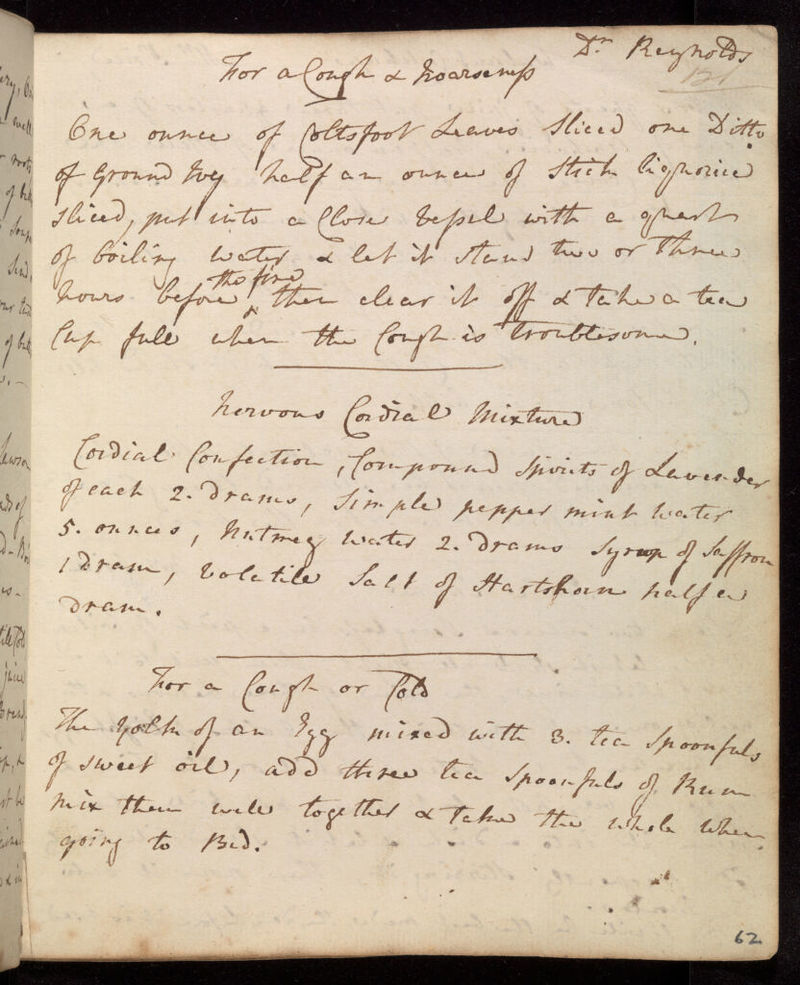 Dr. Reynolds
121
For a Cough & Hoarseness
One ounce of Coltsfoot Leaves Sliced one Ditto
of Ground Ivy half an ounce of Stick liquorice
Sliced, put into a Close Vessel with a quart
of boiling water & let it stand two or three
hours before the fire then clear it off & take a tea
Cup full when the Cough is troublesome.
Nervous Cordial Mixture
Cordial Confection, Compound Spirits of Lavender
of each 2. Drams, Simple pepper mint water
5. ounces, Nutmeg water 2. Drams Syrup of Saffron
1 Dram, Volatile Salt of Hartshorn half a
Dram.
For a Cough or Cold
The yolk of an Egg mixed with 3. tea Spoonfuls
of sweet oil, add three tea Spoonfuls of Rum
mix them well together & take the whole when
going to Bed.
62